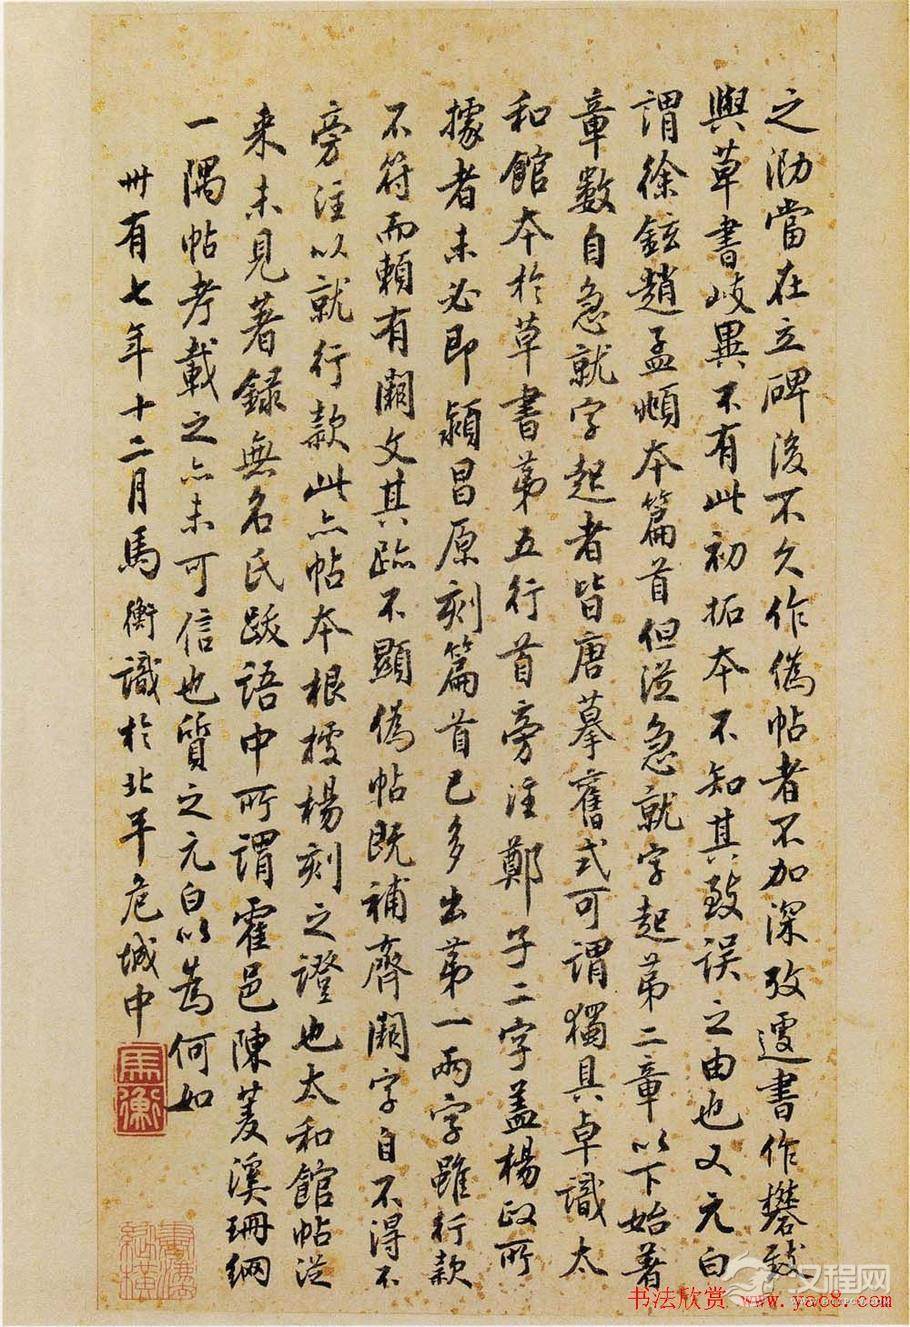 之泐當在立碑後不久作偽帖者不加深攷遽書作礬致
與草書歧異不有此初拓本不知其致誤之由也又元白
謂徐鉉趙孟頫本篇首但從急就字起第二章以下始著
章數自急就字起者皆唐摹舊式可謂獨具卓識太
和館本於草書第五行首旁注鄭子二字蓋楊政所
據者未必即潁昌原刻篇首已多出第一兩字雖行款
不符而賴有闕文其跡不顯偽帖既補齊闕字自不得不
旁注以就行款此亦帖本根據楊刻之證也太和館帖從
来未見著錄無名氏跋語中所謂霍邑陳菱溪珊網
一隅帖考載之亦未可信也質之元白以為何如
卅有七年十二月馬衡識於北平危城中
馬衡
汉程网
书法欣赏 www.yac8.com